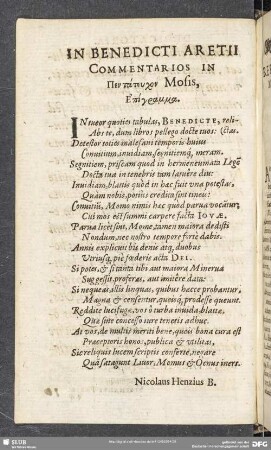 IN BENEDICTI ARETII
COMMENTARIOS IN
Πεντάτευχον Mosis,
Επίγραμμα.
INtueor quoties tabulas, BENEDICTE, reli-
Abs te, dum libros pellego docte tuos: (ctas.
Detestor toties malesani temporis huius
Conuitium, inuidiam, segnitiemq́; meram.
Segnitiem, priscam quod in
Docta tua in tenebris tum diu:
Inuidiam, blattis quod in hæc fuit vna potestas,
Quàm nobis, potius credulit tineis:
Conuitii, Momo nimis hæc quòd parua vocantur,
Cui mos est summi carpere facta IOVÆ.
Parua licet sint, Mome, tamen maiora dedisti
Nondum, nec nostro tempore forte dabis.
Annis explicuit bis denis atq́; duobus
Vtriusq́; piè fœderis acta DEI.
Si potes, & si tanta tibi aut maiora Minerua
Suggessit, proferas, aut imitere datis:
Si nequeas, allis linguas, quibus hæcce probantur,
Magna & censentur, quoiq́; prodesse queunt.
Reddite lucifugæ, vos ô turba inuida, blattæ,
Quæ sine concesso iure tenetis adhuc.
At vos, de multis meriti bene, queis bona cura est
Præcerporis honos, publica & vtilitas,
Sic reliquis lucem scriptis conferte, negare
Quã satagunt Liuor, Momus & Oenus iners.
Nicolaus Henzius B.
SLUB